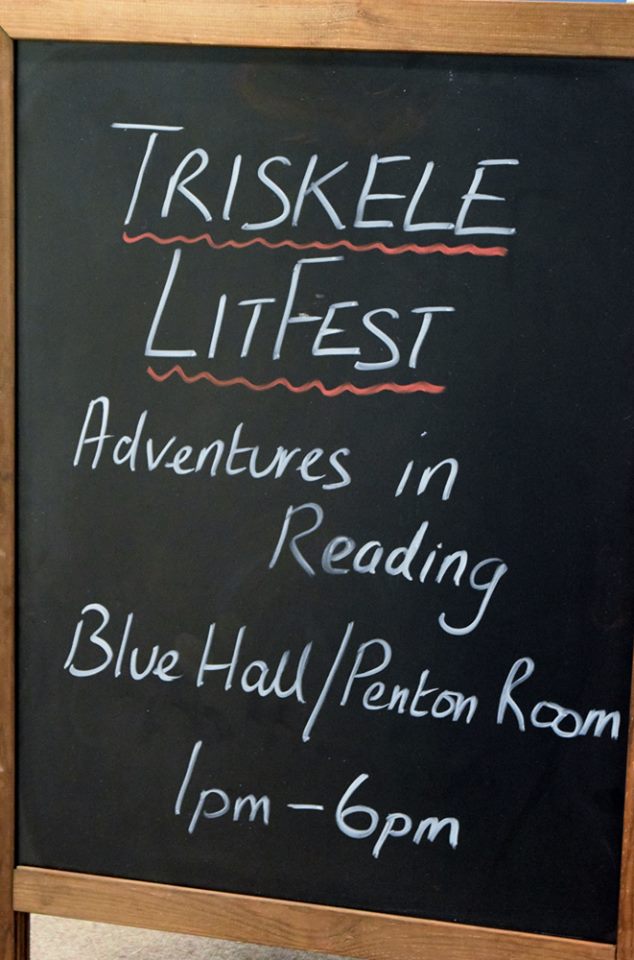 TRISKELE
LITFEST
Adventures in
Reading
Blue Hall/Penton Room
1pm – 6pm